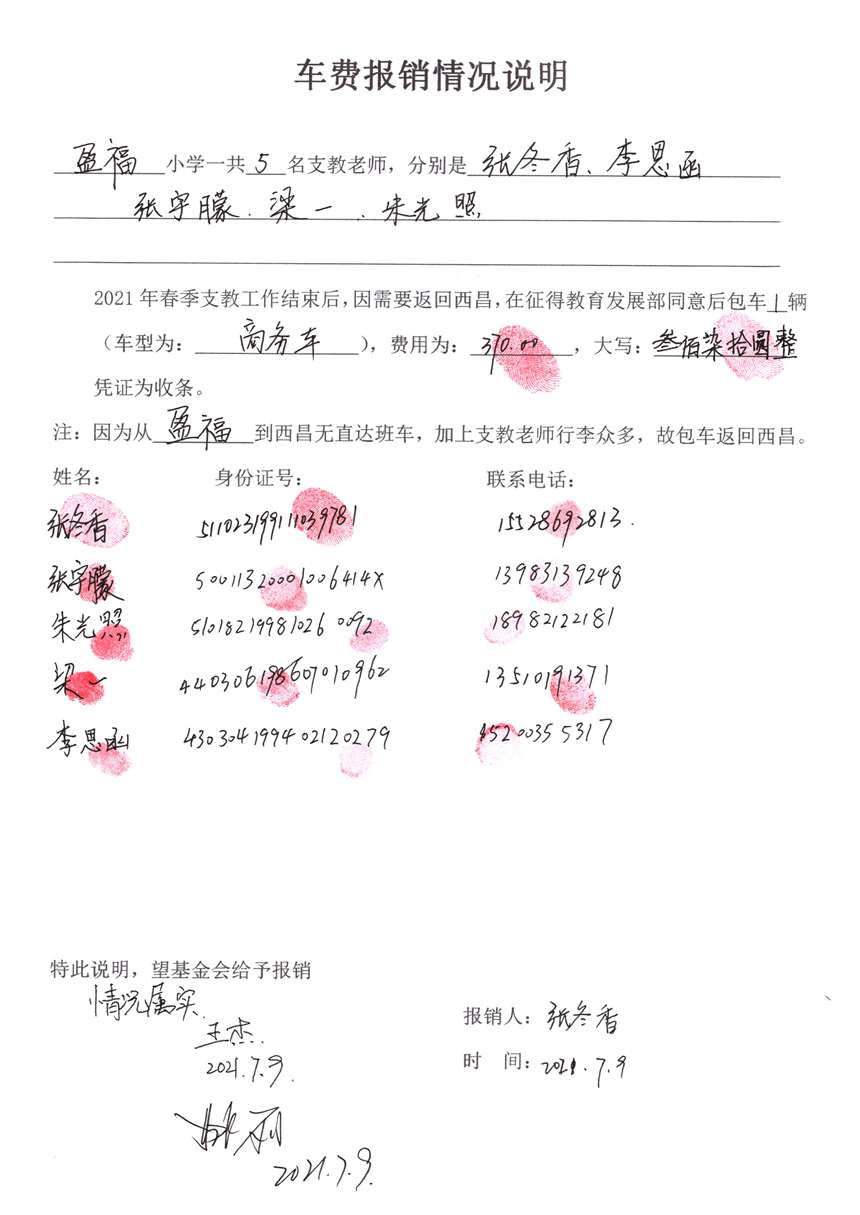 车费报销情况说明
盈福小学一共5名支教老师，分别是张冬香、李思函
张宇朦、梁一、朱光照
2021年春季支教工作结束后，因需要返回西昌，在征得教育发展部同意后包车1辆
（车型为：商务车），费用为：370.00，大写：叁佰柒拾圆整
凭证为收条。
注：因为从盈福到西昌无直达班车，加上支教老师行李众多，故包车返回西昌。
姓名： 身份证号： 联系电话：
张冬香 511023199111039781 15528692813.
张宇朦 50011320001006414X 13983139248
朱光照 510182199810260092 18982122181
梁一 440306198607010962 13510191371
李思函 430304199402120279 15200355317
特此说明，望基金会给予报销
情况属实
王杰.
2021.7.9.
报销人：张冬香
时 间：2021.7.9
2021.7.9.